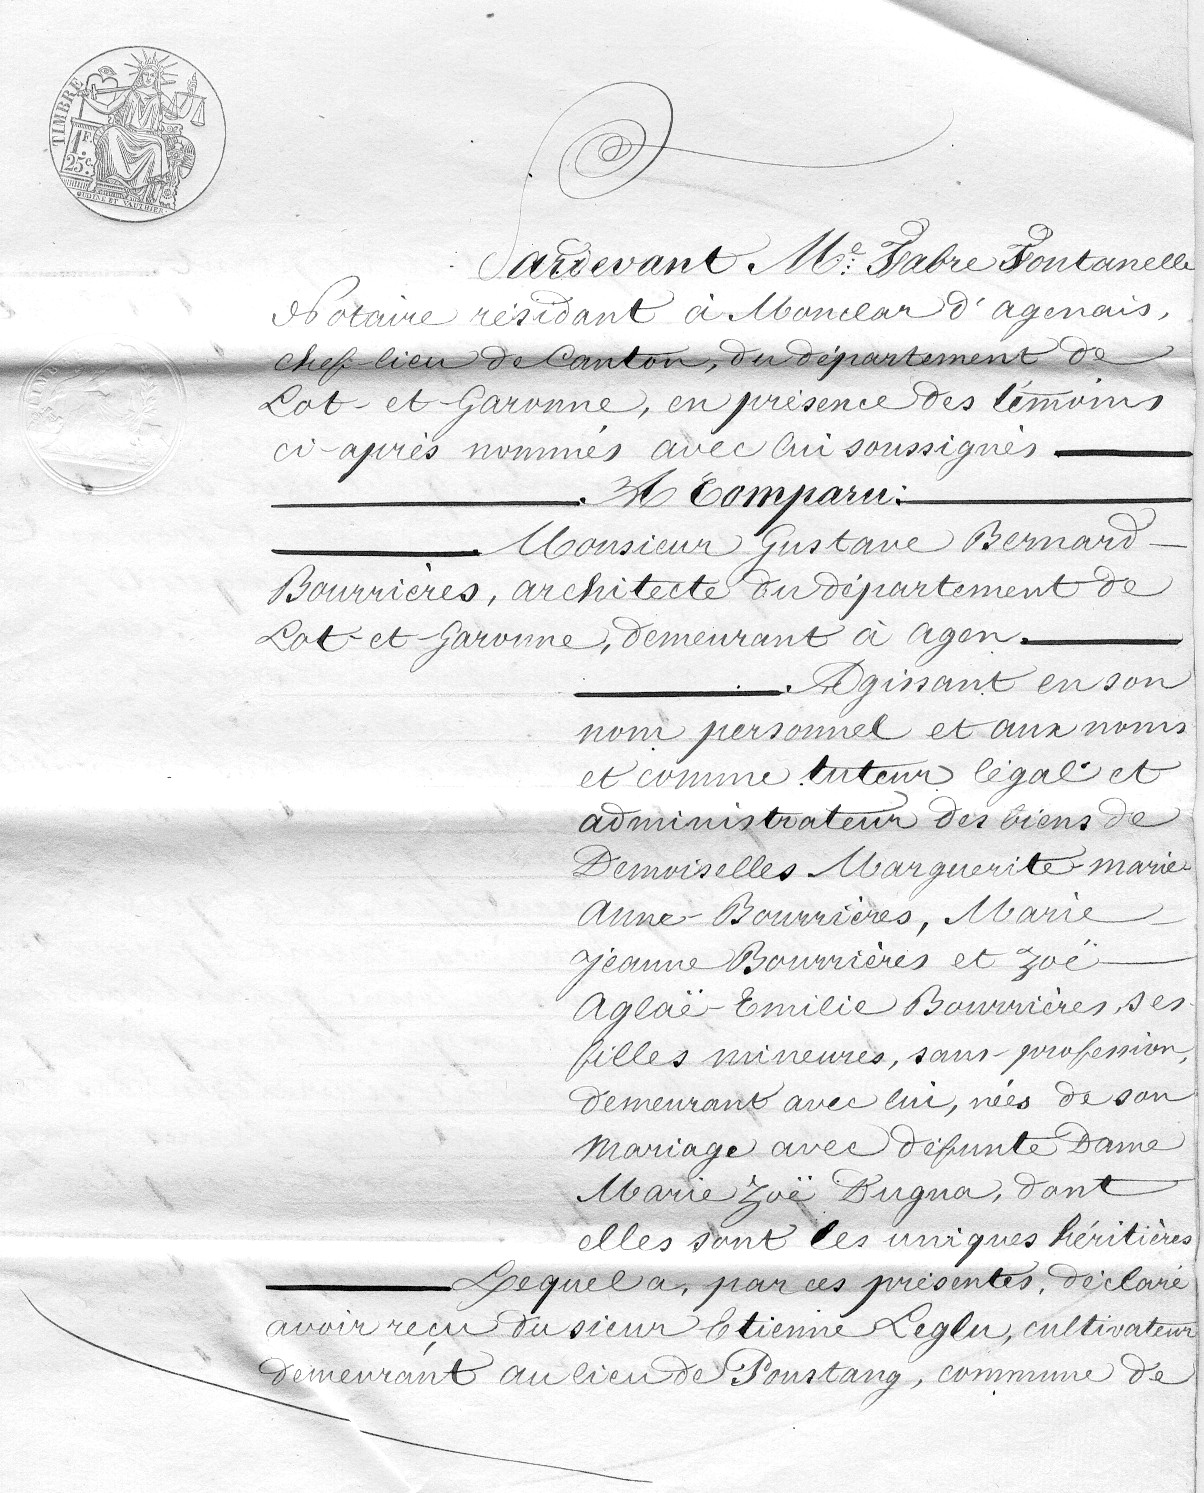 TIMBRE
1F.
25c.
OUDINÉ ET VAUTHIER.
Pardevant Me. Fabre Fontanelle
Notaire résidant à Monclar d'agenais,
chef-lieu de Canton, du département de
Lot-et-Garonne, en présence des témoins
ci-après nommés avec lui soussignés
A Comparu:
Monsieur Gustave Bernard-
Bourrières, architecte du département de
Lot-et-Garonne, demeurant à agen.
Agissant en son
nom personnel et aux noms
et comme tuteur légal et
administrateur des biens de
Demoiselles Marguerite-marie-
Anne-Bourrières, Marie
Jeanne Bourrières et Zoë
Aglaë-Emilie Bourrières, ses
filles mineures, sans profession,
demeurant avec lui, nées de son
mariage avec défunte Dame
Marie Zoë Dugua, dont
elles sont les uniques héritières
Lequel a, par ces présentes, déclaré
avoir reçu du sieur Etienne Leglu, cultivateur
demeurant au lieu de Poustang, commune de